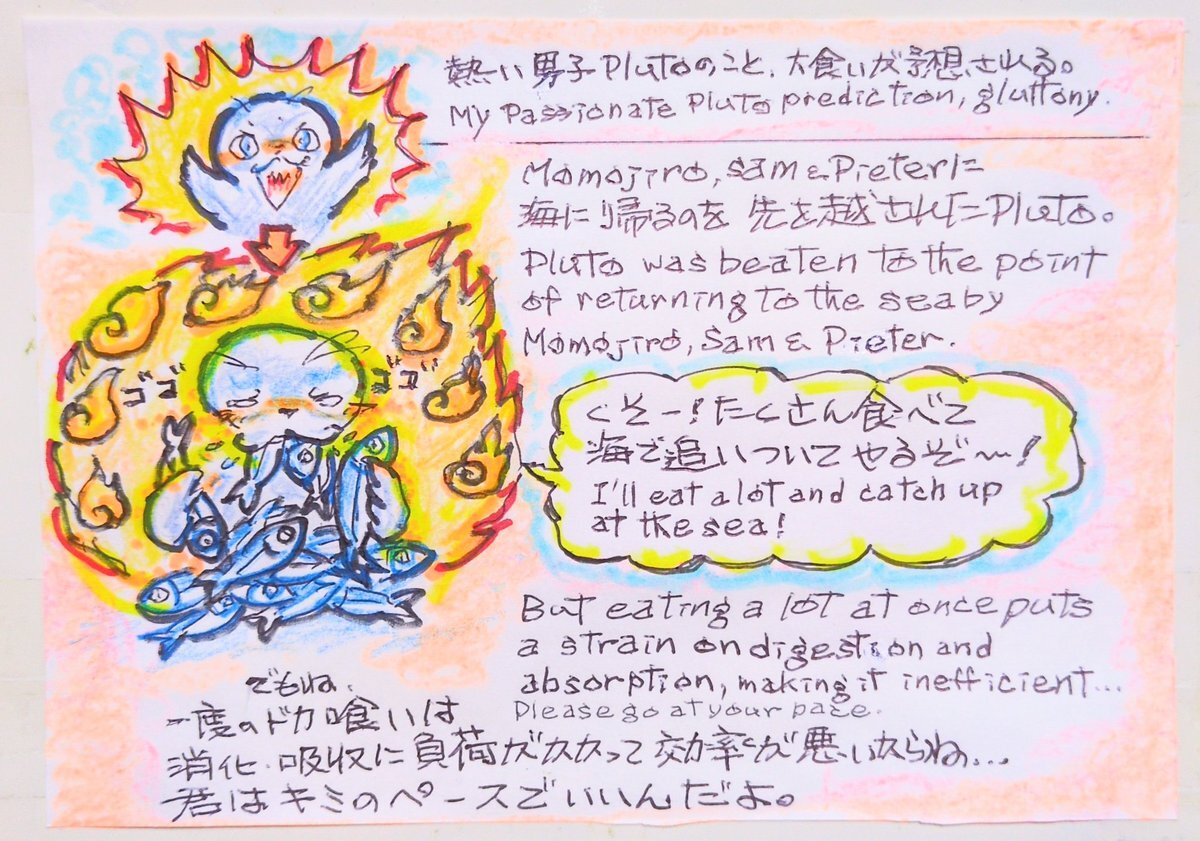 熱い男子Plutoのこと、大食いが予想される。
My Passionate Pluto prediction, gluttony.
Momojiro, Sam & Pieterに
海に帰るのを先を越されたPluto。
Pluto was beaten to the point
of returning to the sea by
Momojiro, Sam & Pieter.
ゴゴ
ゴゴ
くそー!たくさん食べて
海で追いついてやるぞ〜!
I'll eat a lot and catch up
at the sea!
But eating a lot at once puts
a strain on digestion and
absorption, making it inefficient...
Please go at your pace.
でもね、
一度のドカ喰いは
消化・吸収に負荷がかかって効率が悪いからね...
君はキミのペースでいいんだよ。